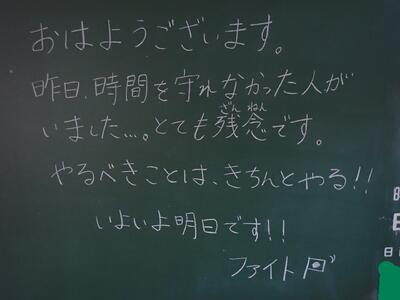 おはようございます。
昨日、時間を守れなかった人が
いました…。とても残念です。
ざんねん
やるべきことは、きちんとやる!!
いよいよ明日です!!
ファイト
日